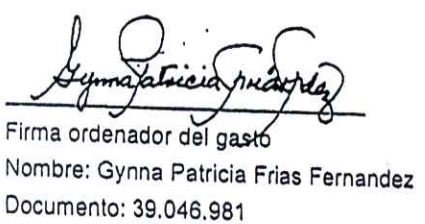 Gynna Patricia Frias Fdez
Firma ordenador del gasto
Nombre: Gynna Patricia Frias Fernandez
Documento: 39.046.981